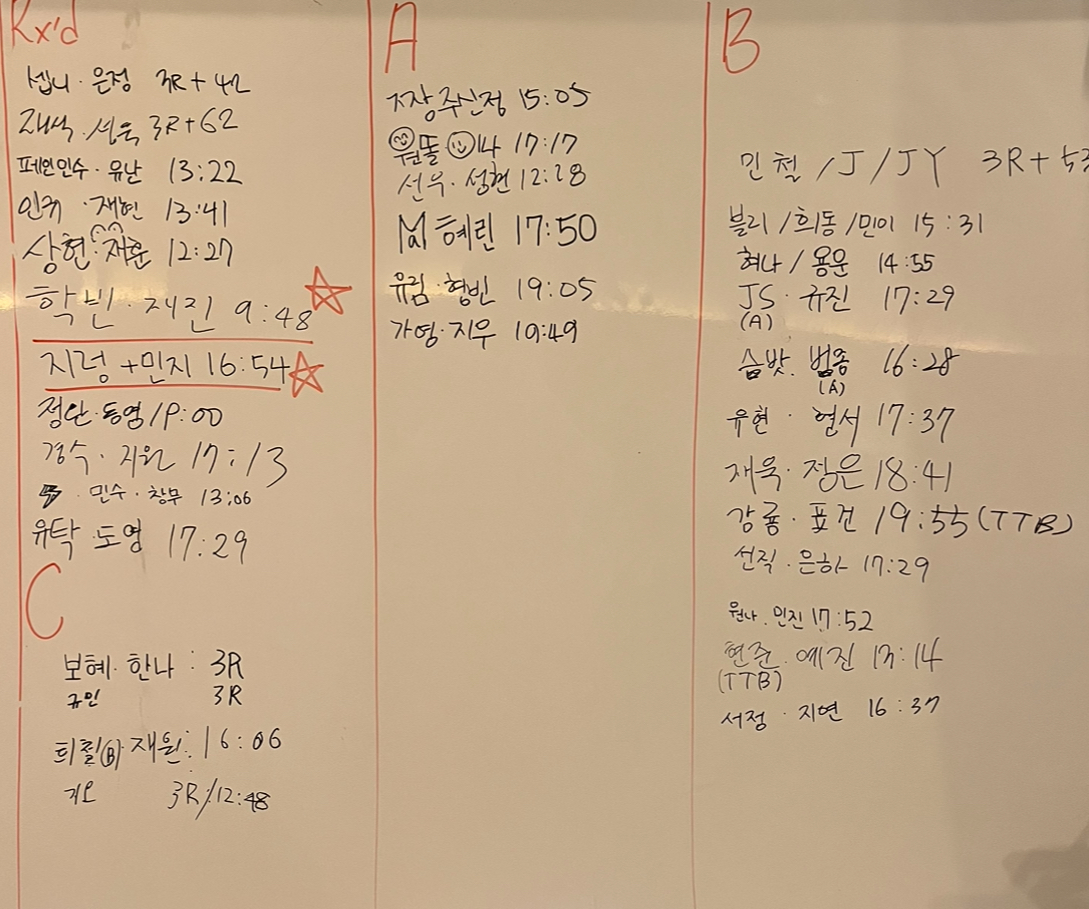 Rx'd
셉니·은정 3R+42
재석·성욱 3R+62
페인인수·유난 13:22
인퀴·재현 13:41
상현·재훈 12:27
학빈·재진 9:48
지렁+민지 16:54
정안·동영 19:00
경수·지원 17:13
·민수·창무 13:06
유탁·도영 17:29
C
보혜·한나: 3R
규민 3R
(B)·재원: 16:06
3R/12:48
A
주신정 15:05
원똘 14 17:17
선우·성현 12:28
혜린 17:50
유림·형빈 19:05
가영·지우 19:49
B
민철/J/JY 3R+53
블리/희동/민이 15:31
혀나/용운 14:55
JS·규진 17:29
(A)
숨밧·범종 16:28
(A)
유현·현서 17:37
재욱·정은 18:41
강룡·표건 19:55 (TTB)
선직·은하 17:29
원나·민진 17:52
현준·예진 13:14
(TTB)
서정·지연 16:37